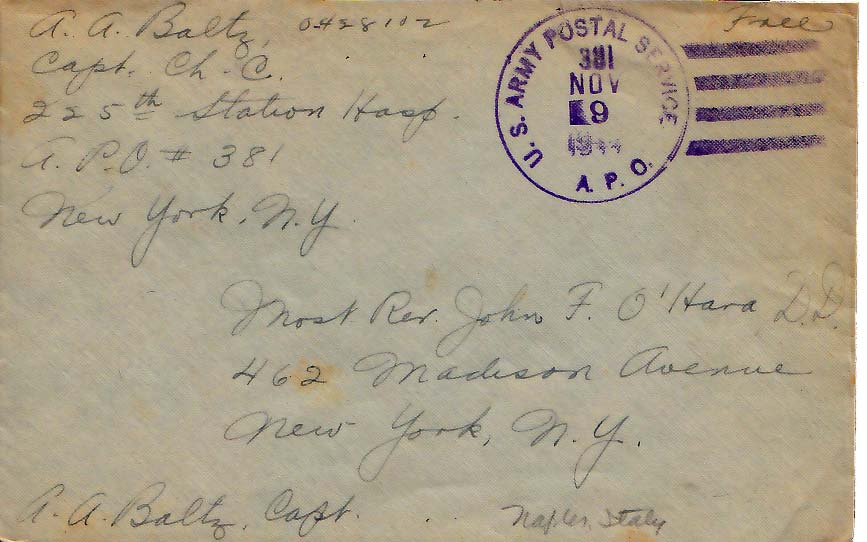 A. A. Baltz, 0428102
Capt. Ch. C.
225th Station Hosp.
A. P.O. # 381
New York, N.Y.
Free
U. S. ARMY POSTAL SERVICE
381
NOV
9
1944
A. P. O.
Most Rev. John F. O'Hara D.D.
462 Madison Avenue
New York, N.Y.
A. A. Baltz, Capt.
Naples, Italy